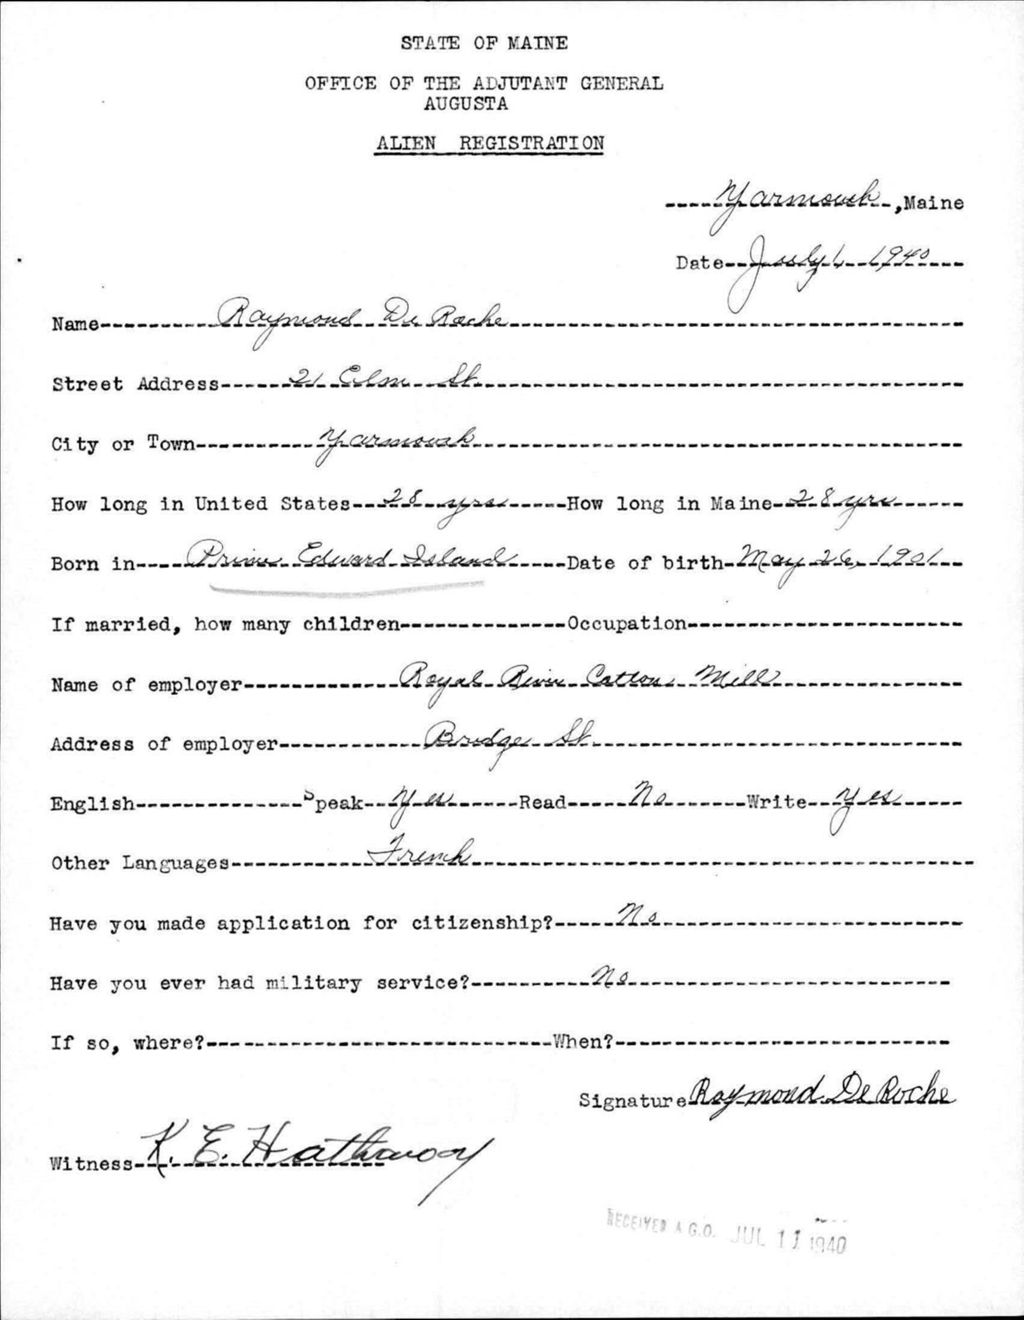 STATE OF MAINE
OFFICE OF THE ADJUTANT GENERAL
AUGUSTA
ALIEN REGISTRATION
Yarmouth, Maine
Date July 1, 1940
Name Raymond De Roche
Street Address 21 Elm St.
City or Town Yarmouth
How long in United States 28 yrs How long in Maine 28 yrs
Born in Prince Edward Island Date of birth May 26, 1901
If married, how many children Occupation
Name of employer Royal River Cotton Mill
Address of employer Bridge St.
English Speak Yes Read No Write Yes
Other Languages French
Have you made application for citizenship? No
Have you ever had military service? No
If so, where? When?
Signature Raymond De Roche
Witness K. E. Hathaway
RECEIVED A.G.O. JUL 11 1940